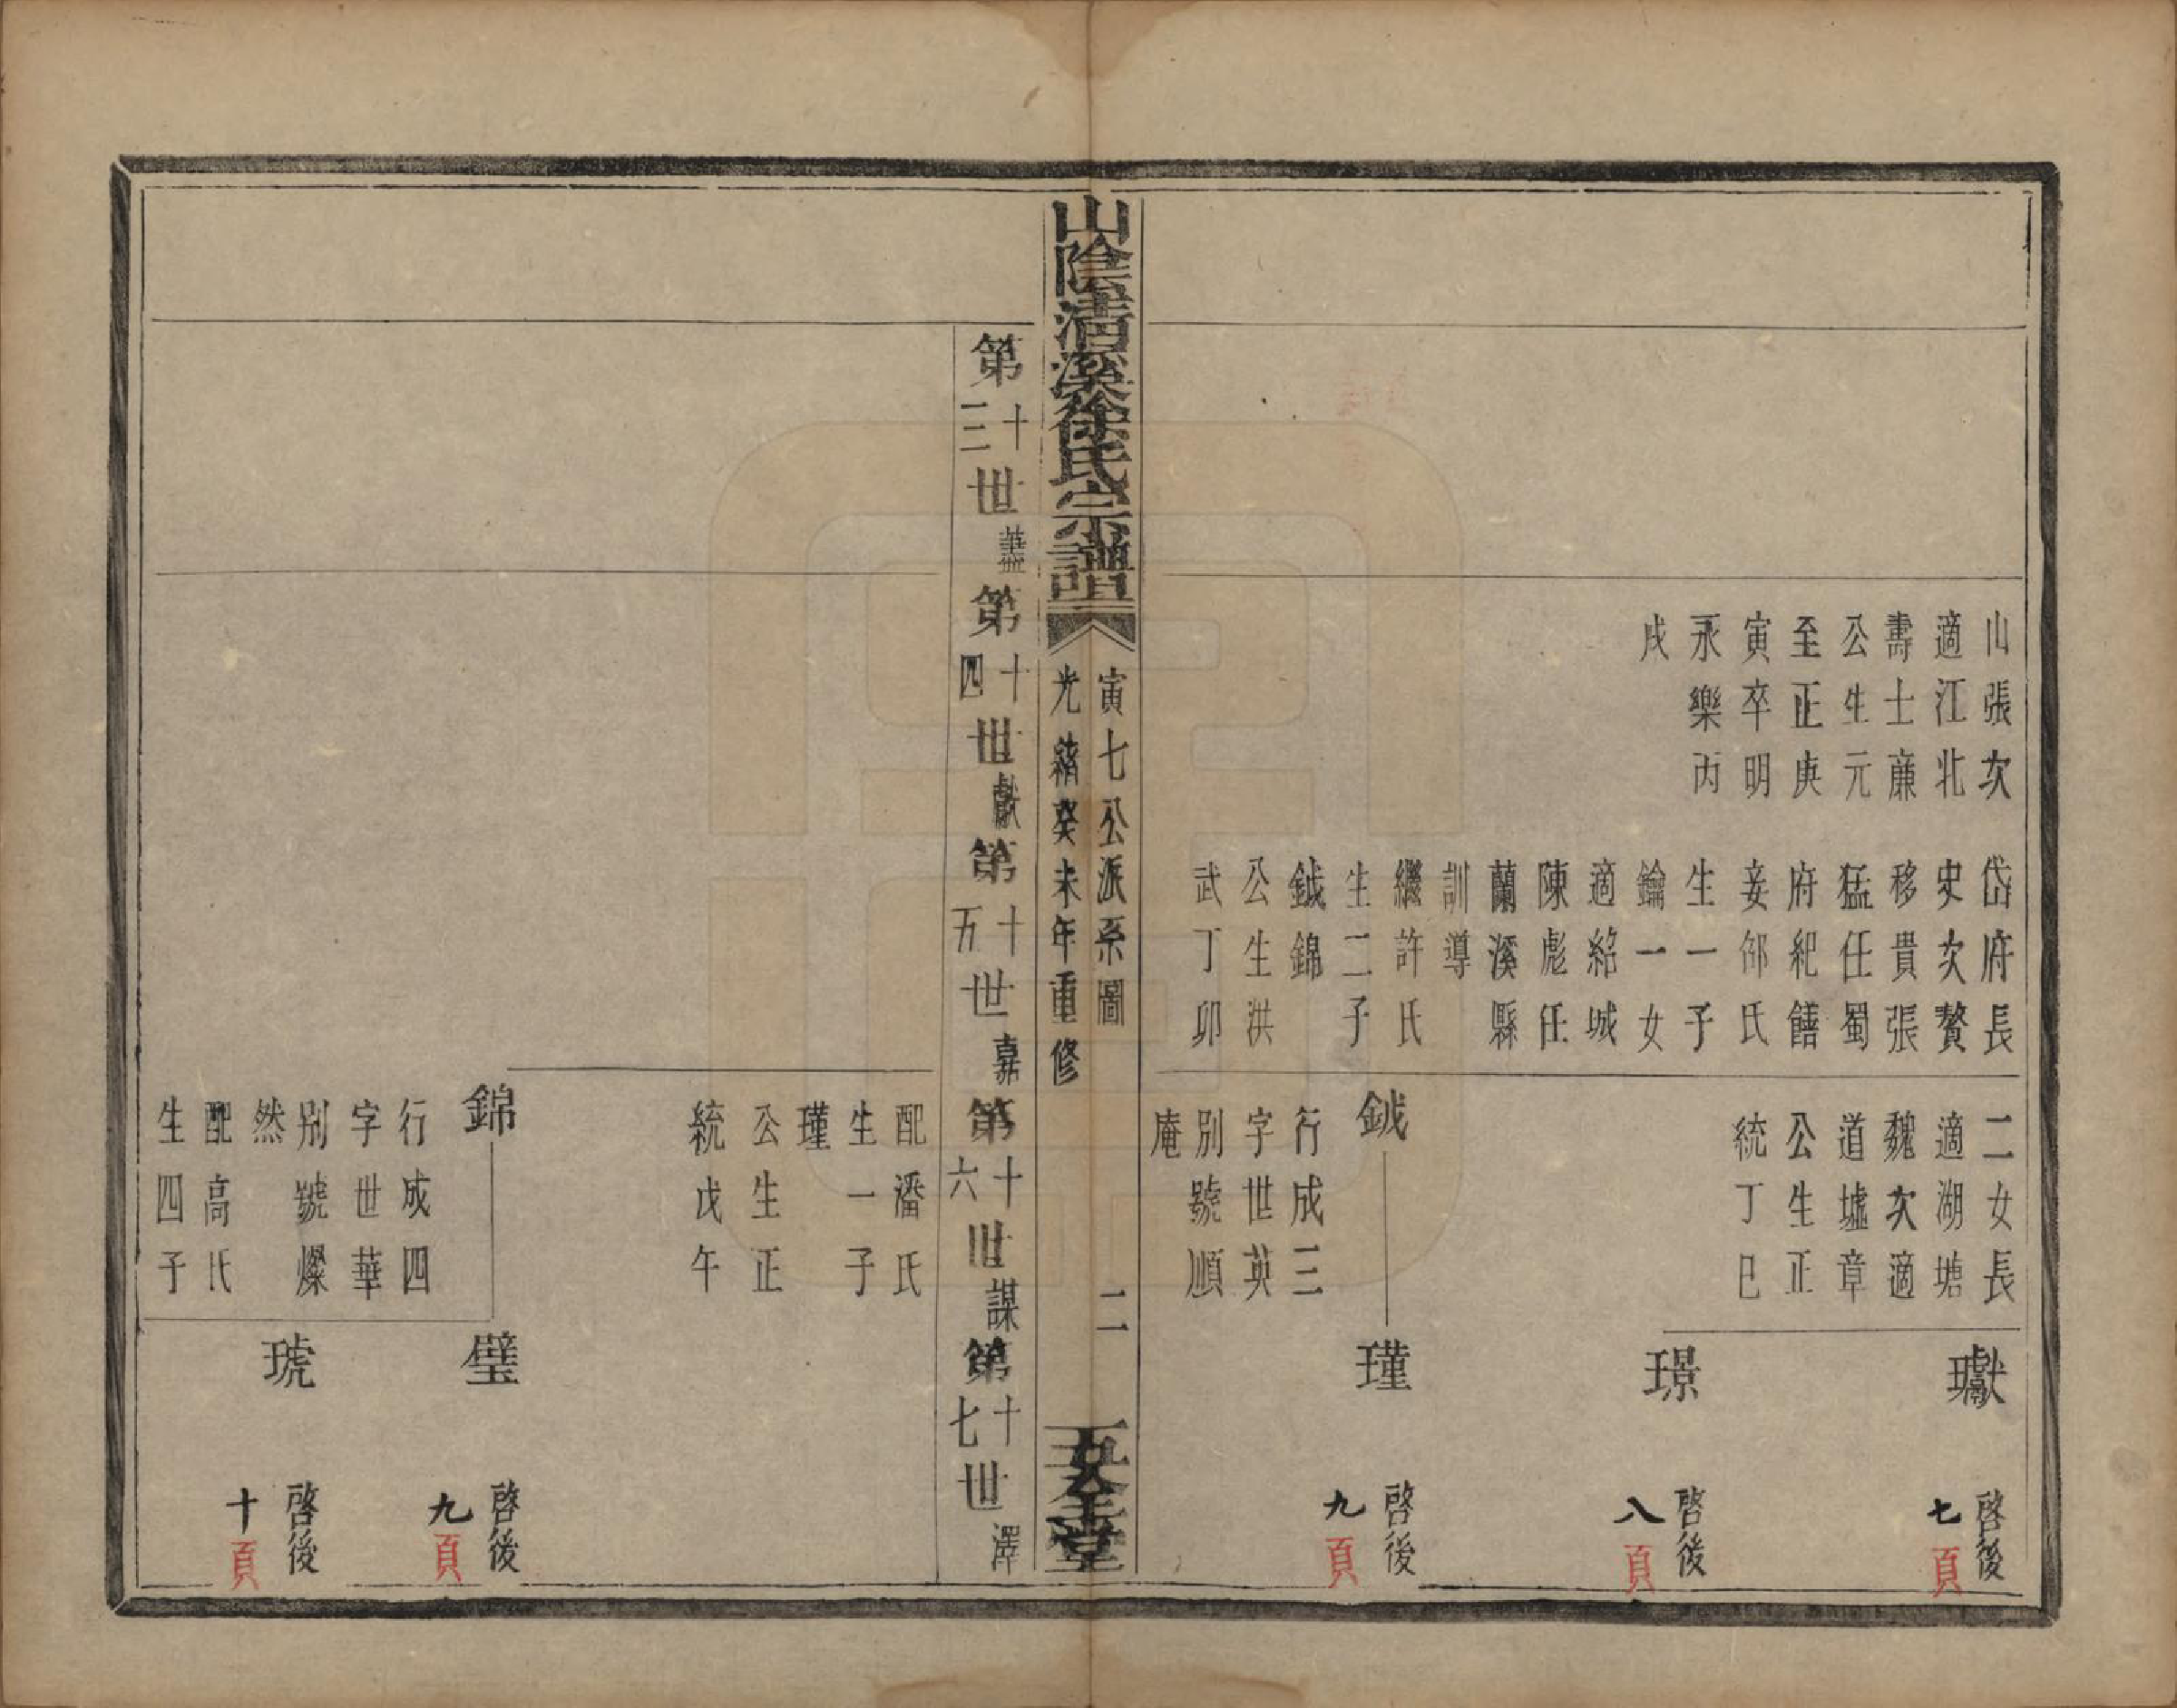 山張次
適江北
壽士蔗
公生元
至正庚
寅卒明
永樂丙
戌
岱府長
史次贅
移貴張
猛任蜀
府紀饍
妾邻氏
生一子
鑰一女
適紹城
陳彪任
蘭溪縣
訓導
繼許氏
生二子
鉞錦
公生洪
武丁卯
二女長
適湖塘
魏次適
道墟章
公生正
統丁巳
鉞
行成三
字世英
別號順
庵
瓛
啓後
七頁
璟
啓後
八頁
瑾
啓後
九頁
山陰清溪徐氏宗譜
寅七公派系圖
光緒癸未年重修
二
一本堂
第十三世
第十四世獻
第十五世嘉
第十六世謀
第十七世澤
配潘氏
生一子
瑾
公生正
統戊午
錦
行成四
字世華
別號燦
然
配高氏
生四子
璧
啓後
九頁
琥
啓後
十頁